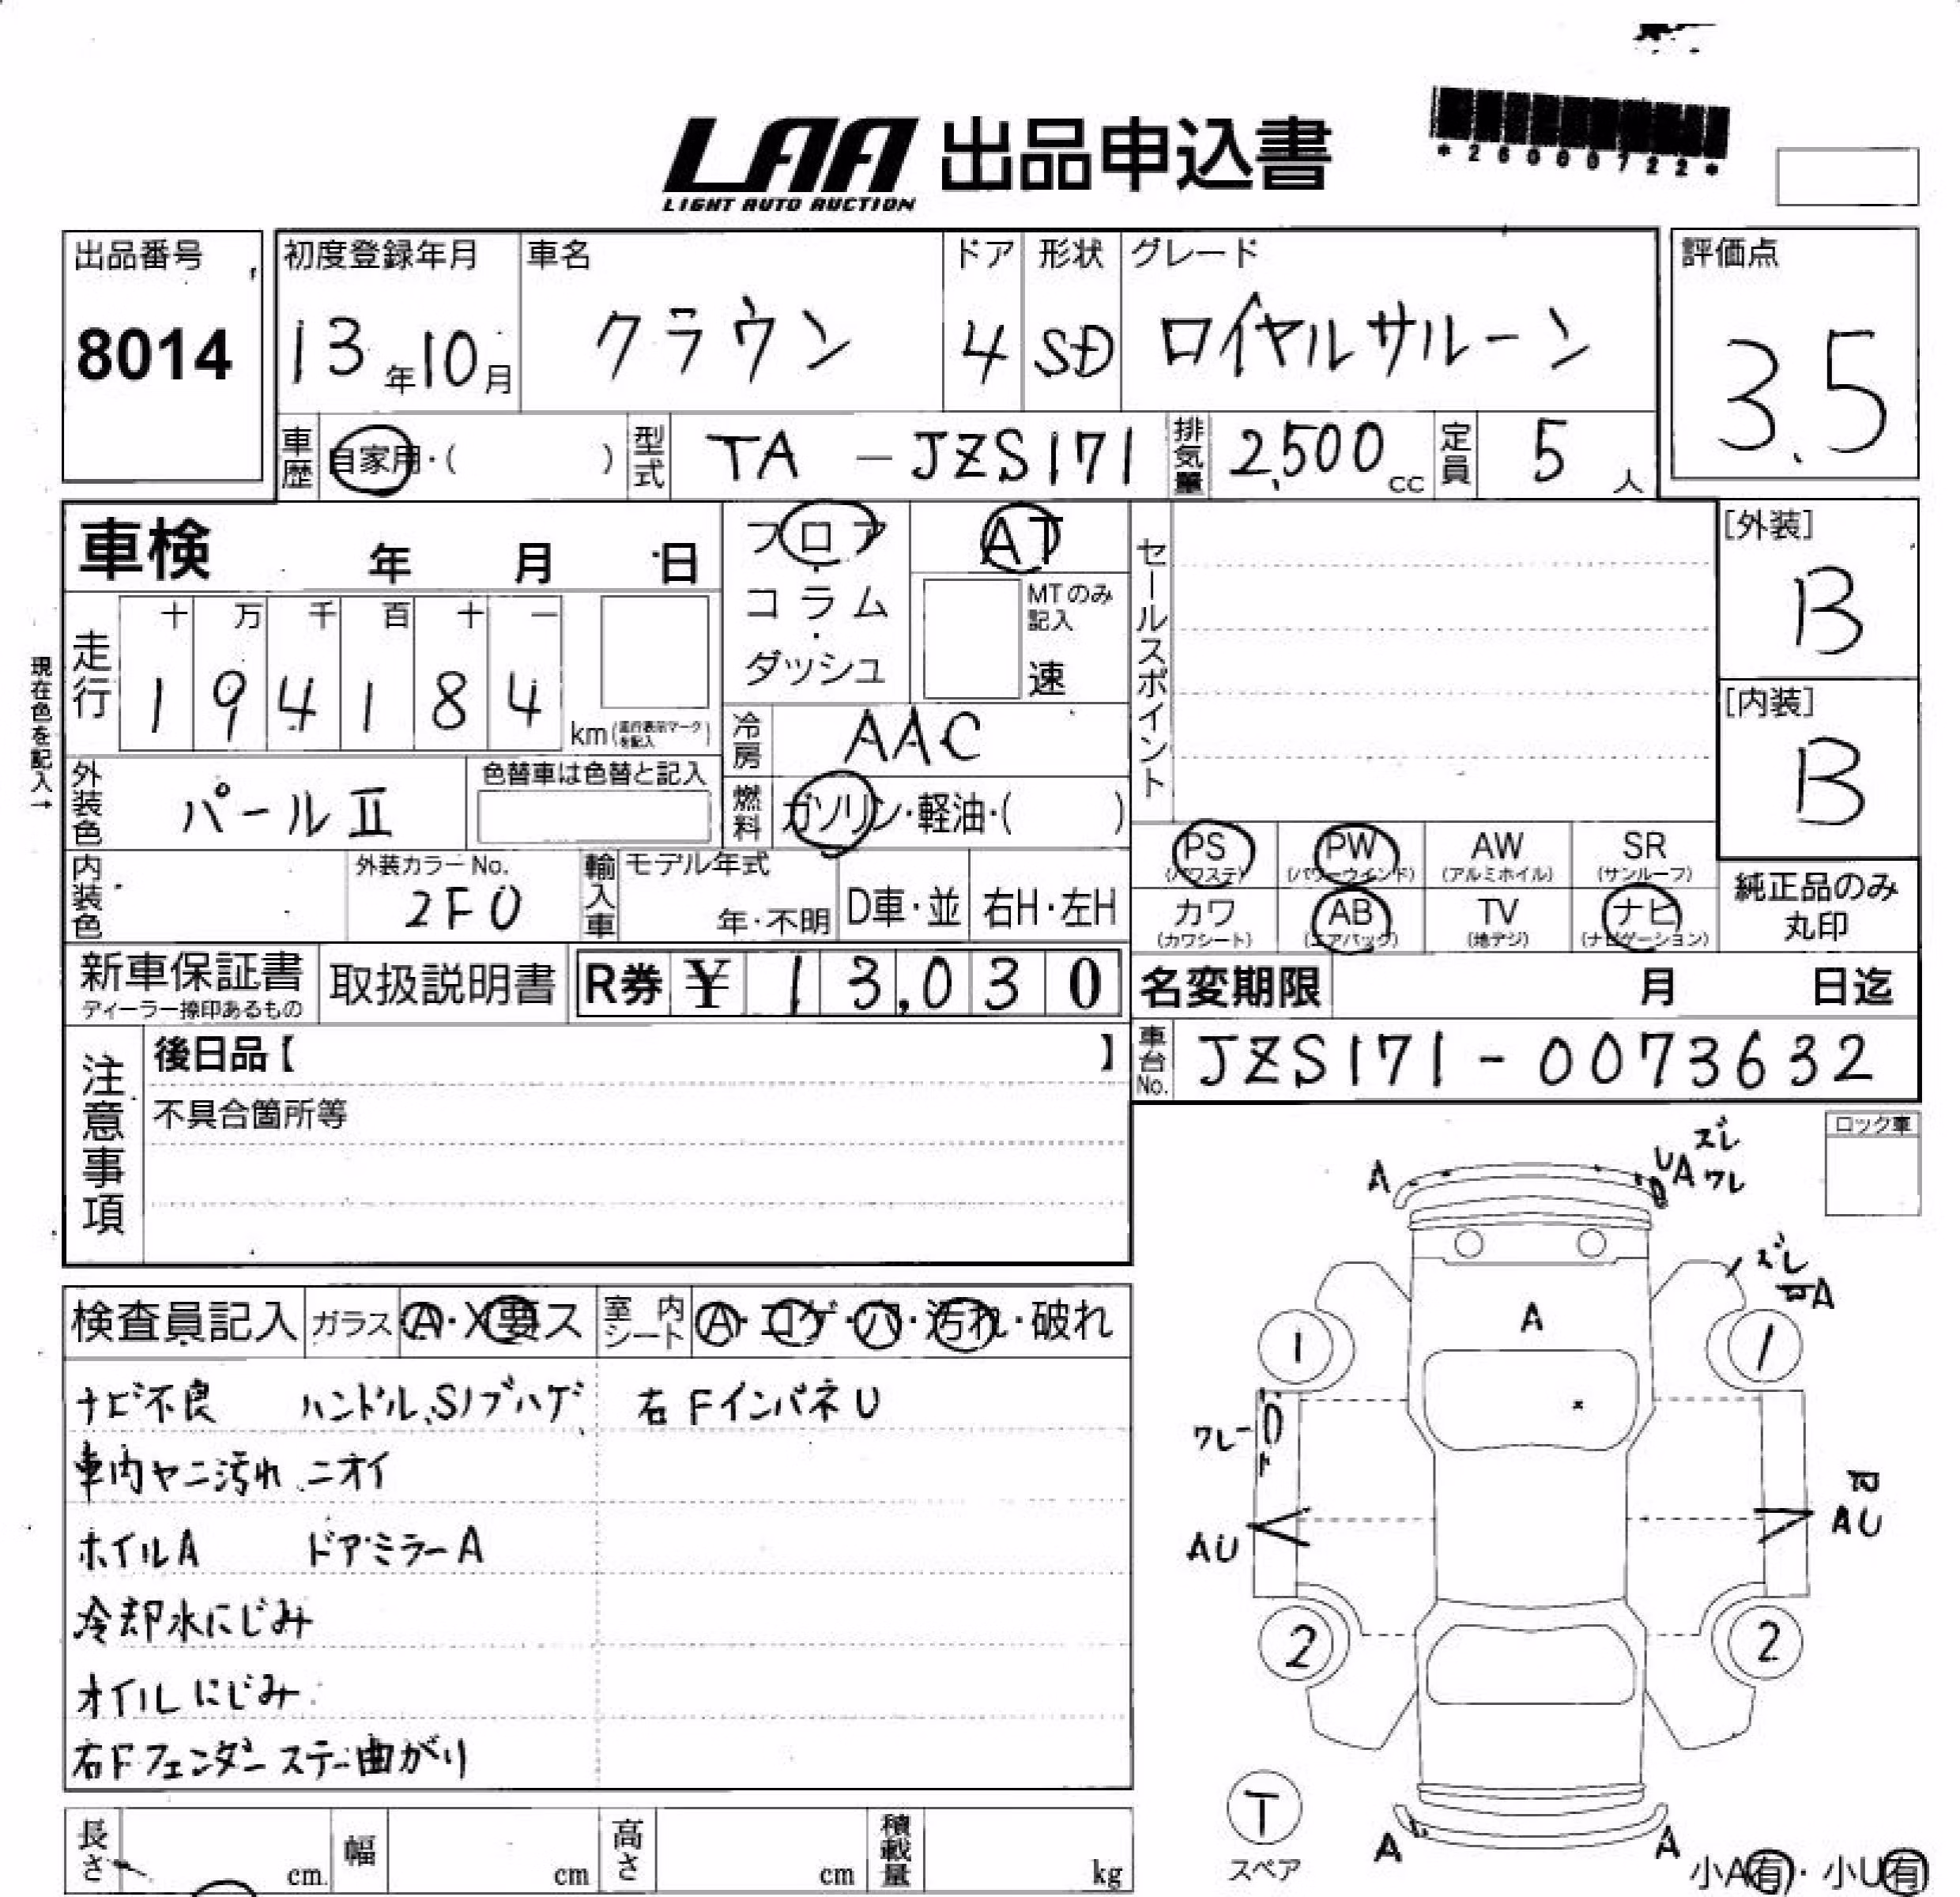 LAA 出品申込書
LIGHT AUTO AUCTION
*26000722*
出品番号
8014
初度登録年月
13年10月
車名
クラウン
ドア
4
形状
SD
グレード
ロイヤルサルーン
評価点
3.5
車歴 自家用・( )
型式 TA-JZS171
排気量 2,500cc
定員 5人
車検 年 月 日
フロア・コラム・ダッシュ
AT
MTのみ記入
速
セールスポイント
[外装]
B
[内装]
B
現在色を記入→
走行
十 万 千 百 十 一
1 9 4 1 8 4
km(走行表示マークを記入)
冷房 AAC
外装色 パールⅡ
色替車は色替と記入
燃料 ガソリン・軽油・( )
内装色
外装カラーNo.
2F0
輸入車
モデル年式
年・不明
D車・並
右H・左H
PS (パワステ)
PW (パワーウインド)
AW (アルミホイル)
SR (サンルーフ)
カワ (カワシート)
AB (エアバッグ)
TV (地デジ)
ナビ (ナビゲーション)
純正品のみ丸印
新車保証書
ディーラー捺印あるもの
取扱説明書
R券 ¥ 13,030
名変期限 月 日迄
車台No. JZS171-0073632
注意事項
後日品【 】
不具合箇所等
ロック車
検査員記入
ガラス A・X要ス
室内シート A・コゲ・穴・汚れ・破れ
ナビ不良 ハンドル、Sノブハゲ 右FインパネU
車内ヤニ汚れ、ニオイ
ホイルA ドアミラーA
冷却水にじみ
オイルにじみ
右Fフェンダーステー曲がり
A
UA ズレ ワレ
ズレ
A
A
1
1
ワレ
AU
AU
2
2
T
スペア
A
A
小A有・小U有
長さ cm
幅 cm
高さ cm
積載量 kg